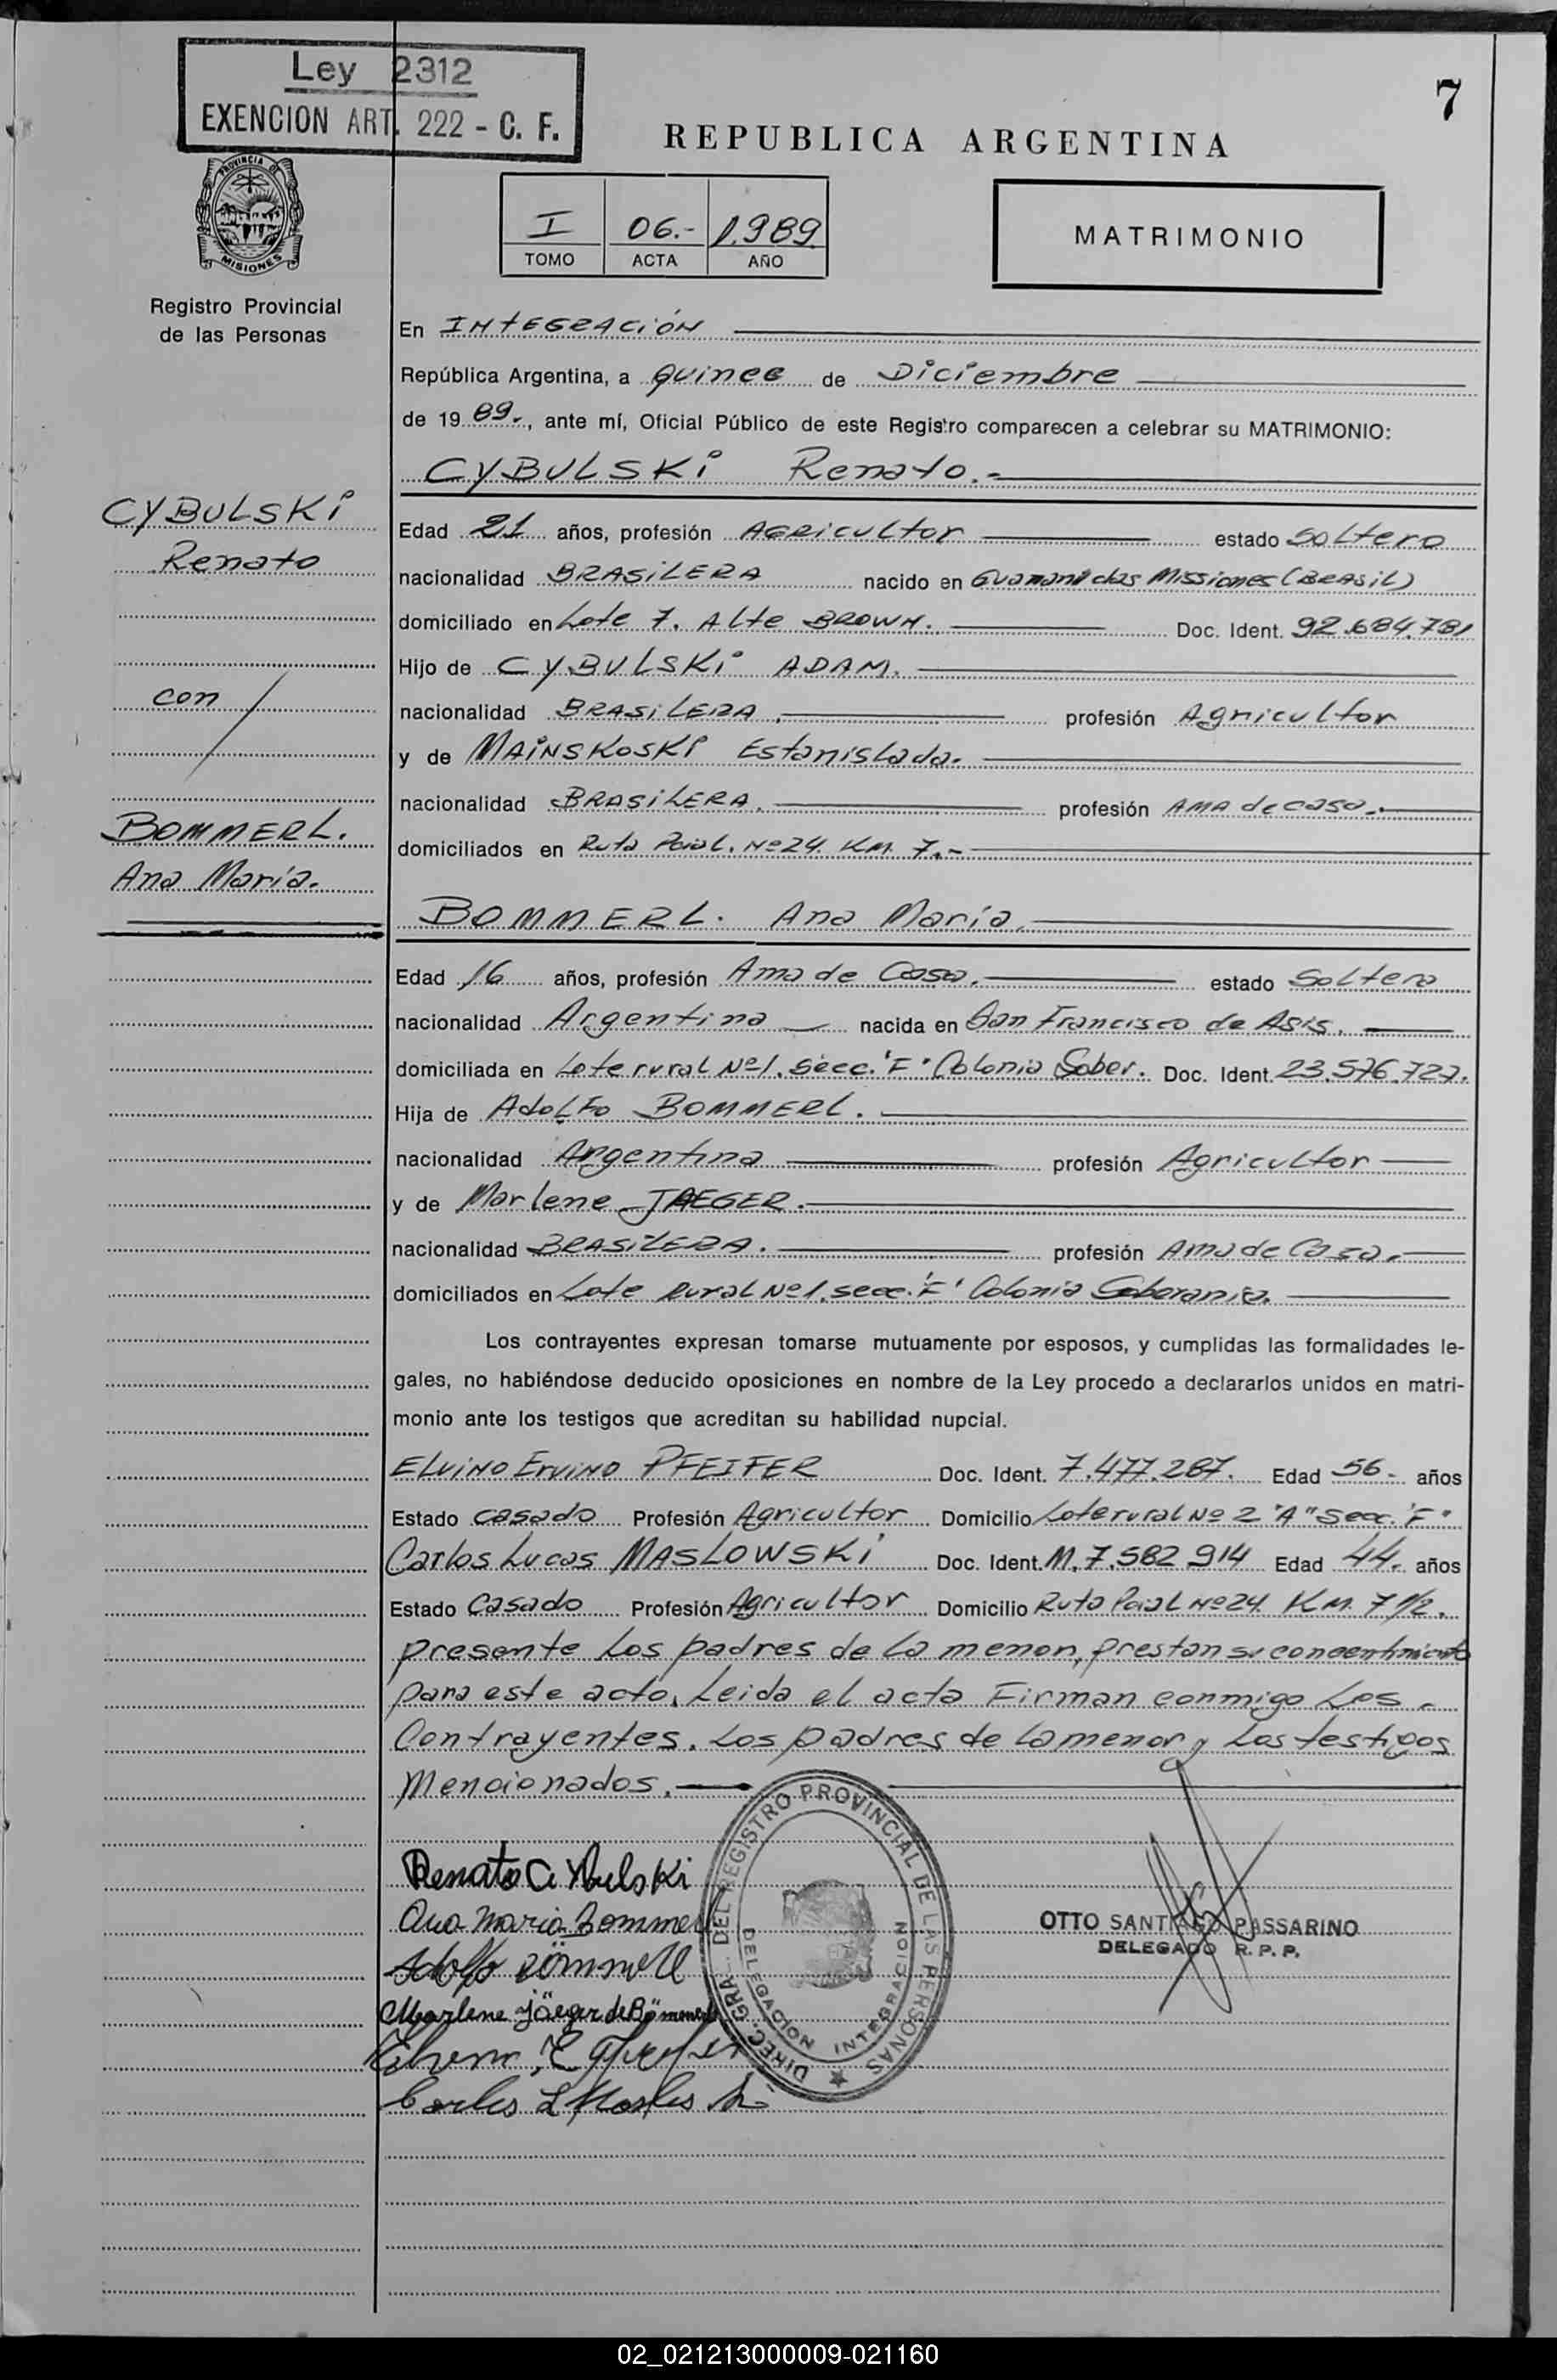 Ley 2312
EXENCION ART. 222 - C. F.
7
REPUBLICA ARGENTINA
PROVINCIA DE
MISIONES
I 06.- 1.989.
TOMO ACTA AÑO
MATRIMONIO
Registro Provincial
de las Personas
En INTEGRACIÓN
República Argentina, a quince de Diciembre
de 19 89., ante mí, Oficial Público de este Registro comparecen a celebrar su MATRIMONIO:
CYBULSKi Renato.-
CYBULSKi
Renato
con
BOMMERL.
Ana María.
Edad 21 años, profesión AGRicultor estado Soltero
nacionalidad BRASiLERA nacido en Guarani das Missiones (BRASiL)
domiciliado en Lote 7. Alte BROWN. Doc. Ident. 92.684.781
Hijo de CYBULSKi ADAM.
nacionalidad BRASiLERA. profesión Agricultor
y de MAiNSKOSKi Estanislada.
nacionalidad BRASiLERA. profesión AMA de casa.
domiciliados en Ruta Pcial. Nº 24. KM. 7.-
BOMMERL. Ana María.
Edad 16 años, profesión Ama de Casa. estado Soltera
nacionalidad Argentina nacida en San Francisco de Asis.
domiciliada en Lote rural Nº 1. Secc. "F" Colonia Sober. Doc. Ident. 23.576.727.
Hija de AdoLFo BOMMERL.
nacionalidad Argentina profesión Agricultor
y de Marlene JAEGER.
nacionalidad BRASiLERA. profesión Ama de Casa.
domiciliados en Lote Rural Nº 1. secc. "F" Colonia Soberania.
Los contrayentes expresan tomarse mutuamente por esposos, y cumplidas las formalidades le-
gales, no habiéndose deducido oposiciones en nombre de la Ley procedo a declararlos unidos en matri-
monio ante los testigos que acreditan su habilidad nupcial.
ELViNO ERViNO PFEIFER Doc. Ident. 7.477.287. Edad 56.- años
Estado casado Profesión Agricultor Domicilio Lote rural Nº 2 "A" Secc. "F"
Carlos Lucas MASLOWSKi Doc. Ident. M. 7.582.914 Edad 44. años
Estado Casado Profesión Agricultor Domicilio Ruta Pcial Nº 24. KM. 7 1/2.
presente Los padres de La menor, prestan su concentimiento
para este acto. Leida el acta Firman conmigo Los
Contrayentes. Los padres de La menor y Los testigos
Mencionados.
Renato Cybulski
Ana Maria Bommerl
Adolfo Bömmerl
Marlene Jäeger de Bömmerl
Carlos L
DIREC. GRAL. DEL REGISTRO PROVINCIAL DE LAS PERSONAS
DELEGACION INTEGRACION
OTTO SANTIAGO PASSARINO
DELEGADO R. P. P.
02_021213000009-021160